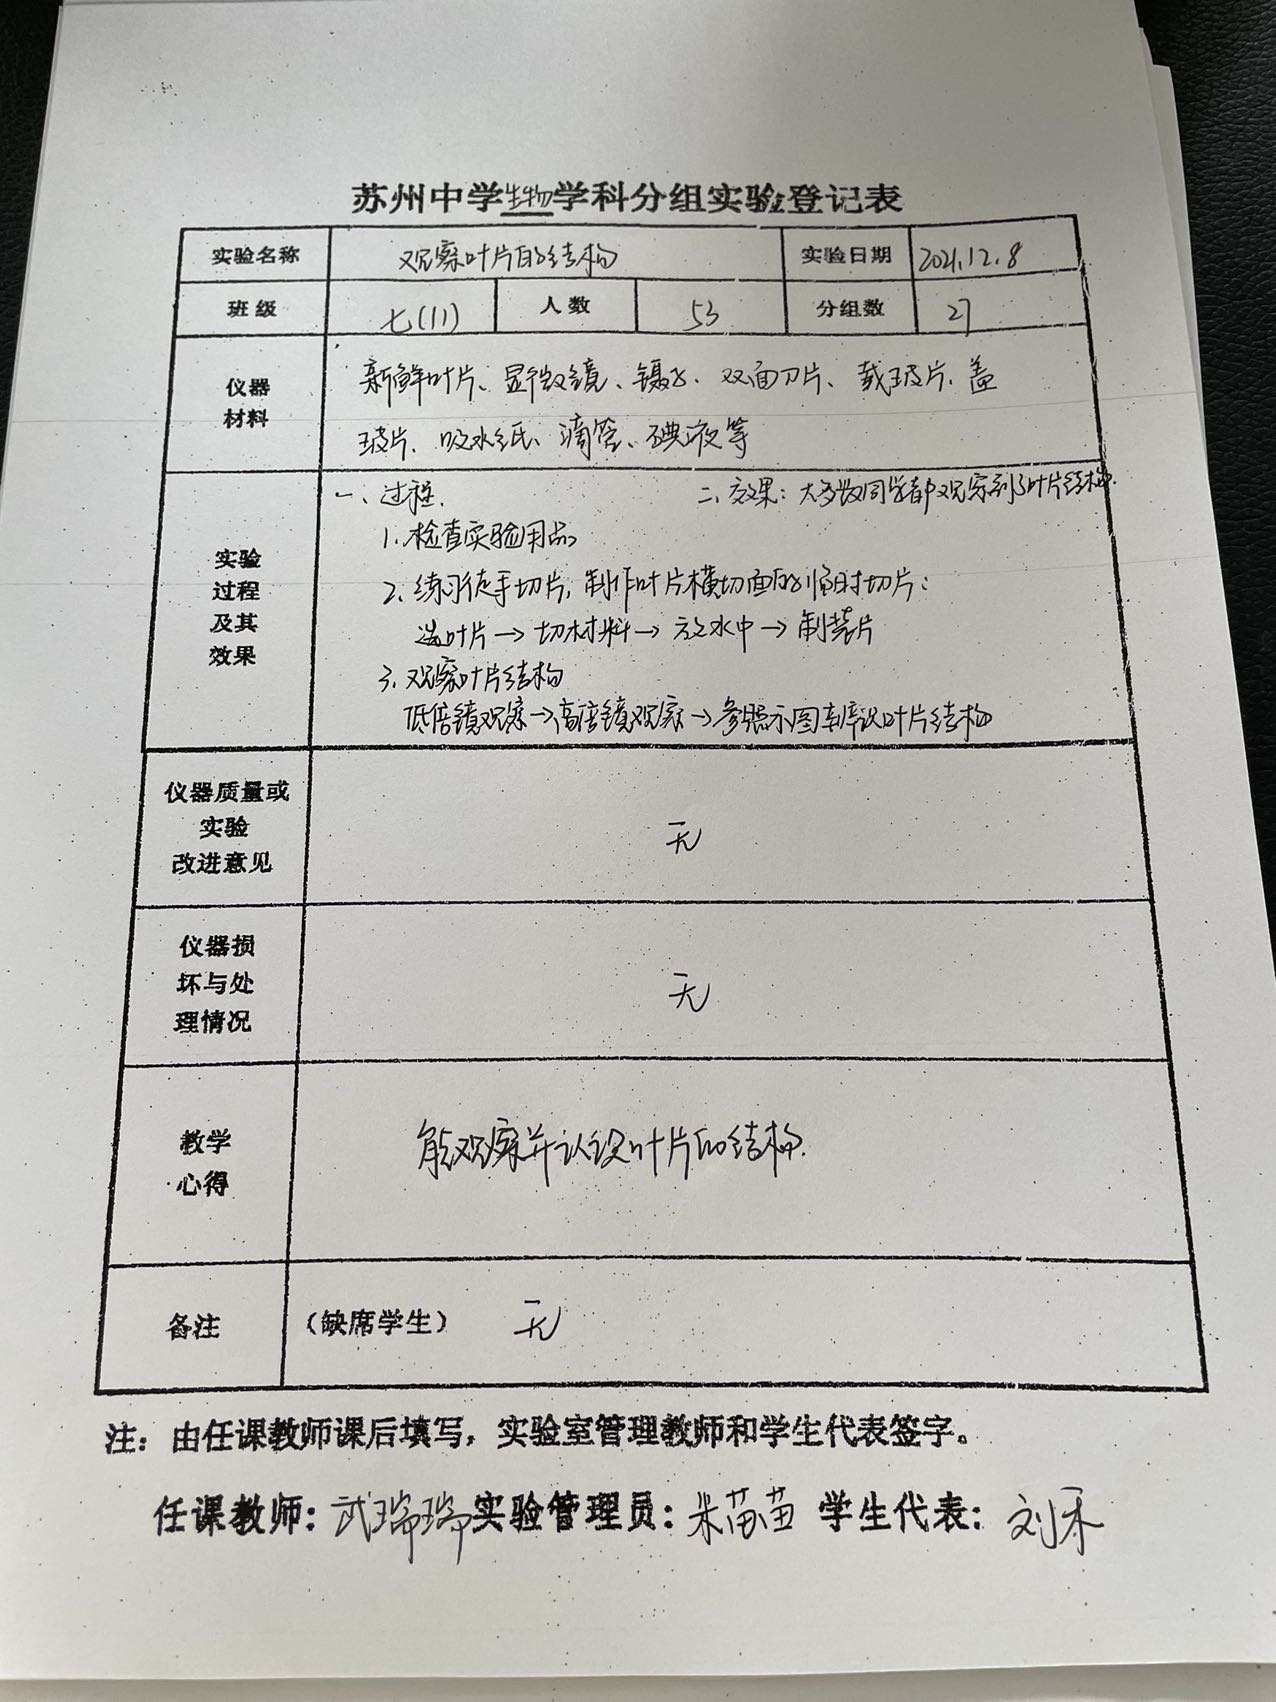 苏州中学生物学科分组实验登记表
实验名称 观察叶片的结构 实验日期 2021.12.8
班级 七(11) 人数 53 分组数 27
仪器
材料
新鲜叶片、显微镜、镊子、双面刀片、载玻片、盖
玻片、吸水纸、滴管、碘液等
实验
过程
及其
效果
一、过程.
二、效果：大多数同学都观察到了叶片结构.
1.检查实验用品
2、练习徒手切片，制作叶片横切面的临时切片：
选叶片→切材料→放水中→制装片
3、观察叶片结构
低倍镜观察→高倍镜观察→参照示图辨识叶片结构
仪器质量或
实验
改进意见
无
仪器损
坏与处
理情况
无
教学
心得
能观察并认识叶片的结构.
备注 (缺席学生) 无
注：由任课教师课后填写，实验室管理教师和学生代表签字。
任课教师：武瑞瑞 实验管理员：米苗苗 学生代表：刘禾